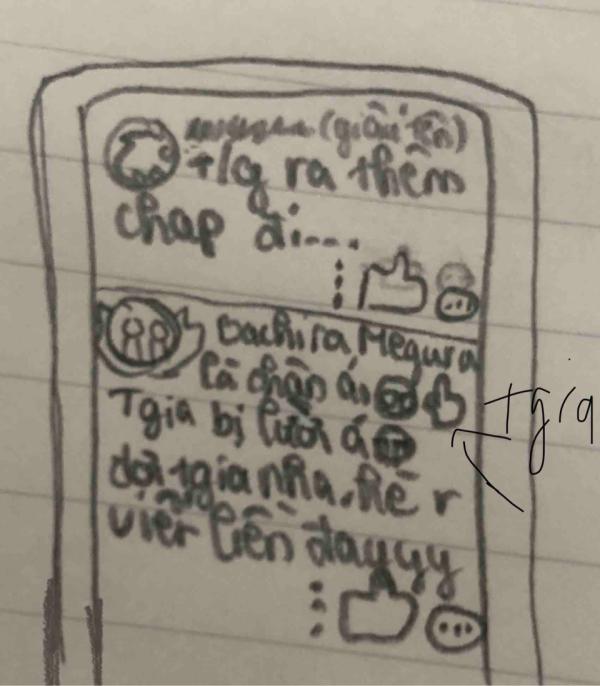 (giấu tên)
t/g ra thêm
chap đi....
bachira, Megura
là chân ái
tg/a
Tgia bị lười á
đợi tgia nha. hè r
viết liền đayyy